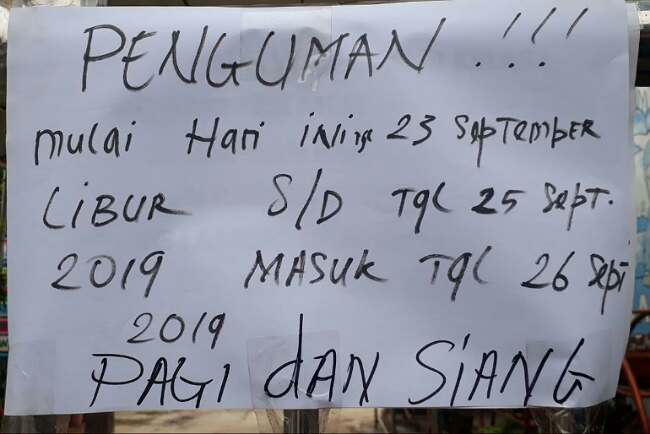 PENGUMAN !!!
mulai Hari iNi 23 SepTEMBER
LiBUR S/D Tgl 25 SepT.
2019 MASUK Tgl 26 Sept
2019
PAGI dAN SiANG